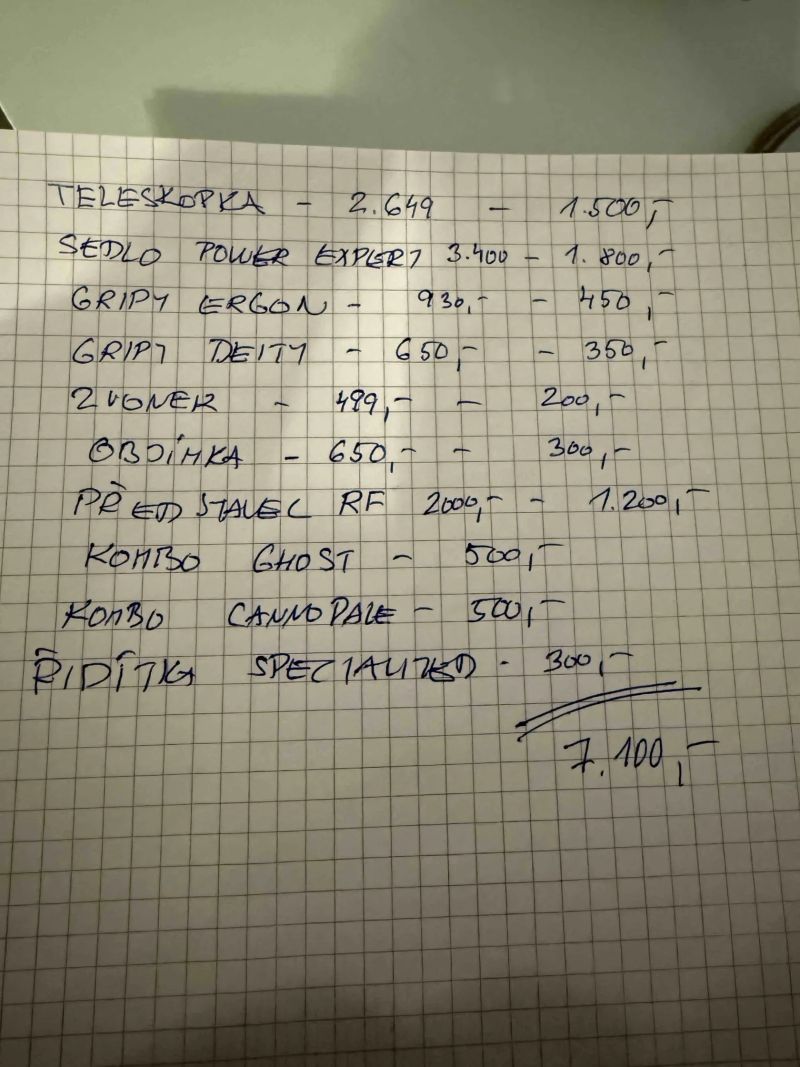 TELESKOPKA - 2.649 - 1.500,-
SEDLO POWER EXPERT 3.400 - 1.800,-
GRIPY ERGON - 930,- - 450,-
GRIPY DEITY - 650,- - 350,-
ZVONEK - 499,- - 200,-
OBJÍMKA - 650,- - 300,-
PŘEDSTAVEC RF 2000,- - 1.200,-
KOMBO GHOST - 500,-
KOMBO CANNODALE - 500,-
ŘIDÍTKA SPECIALIZED - 300,-
7.100,-